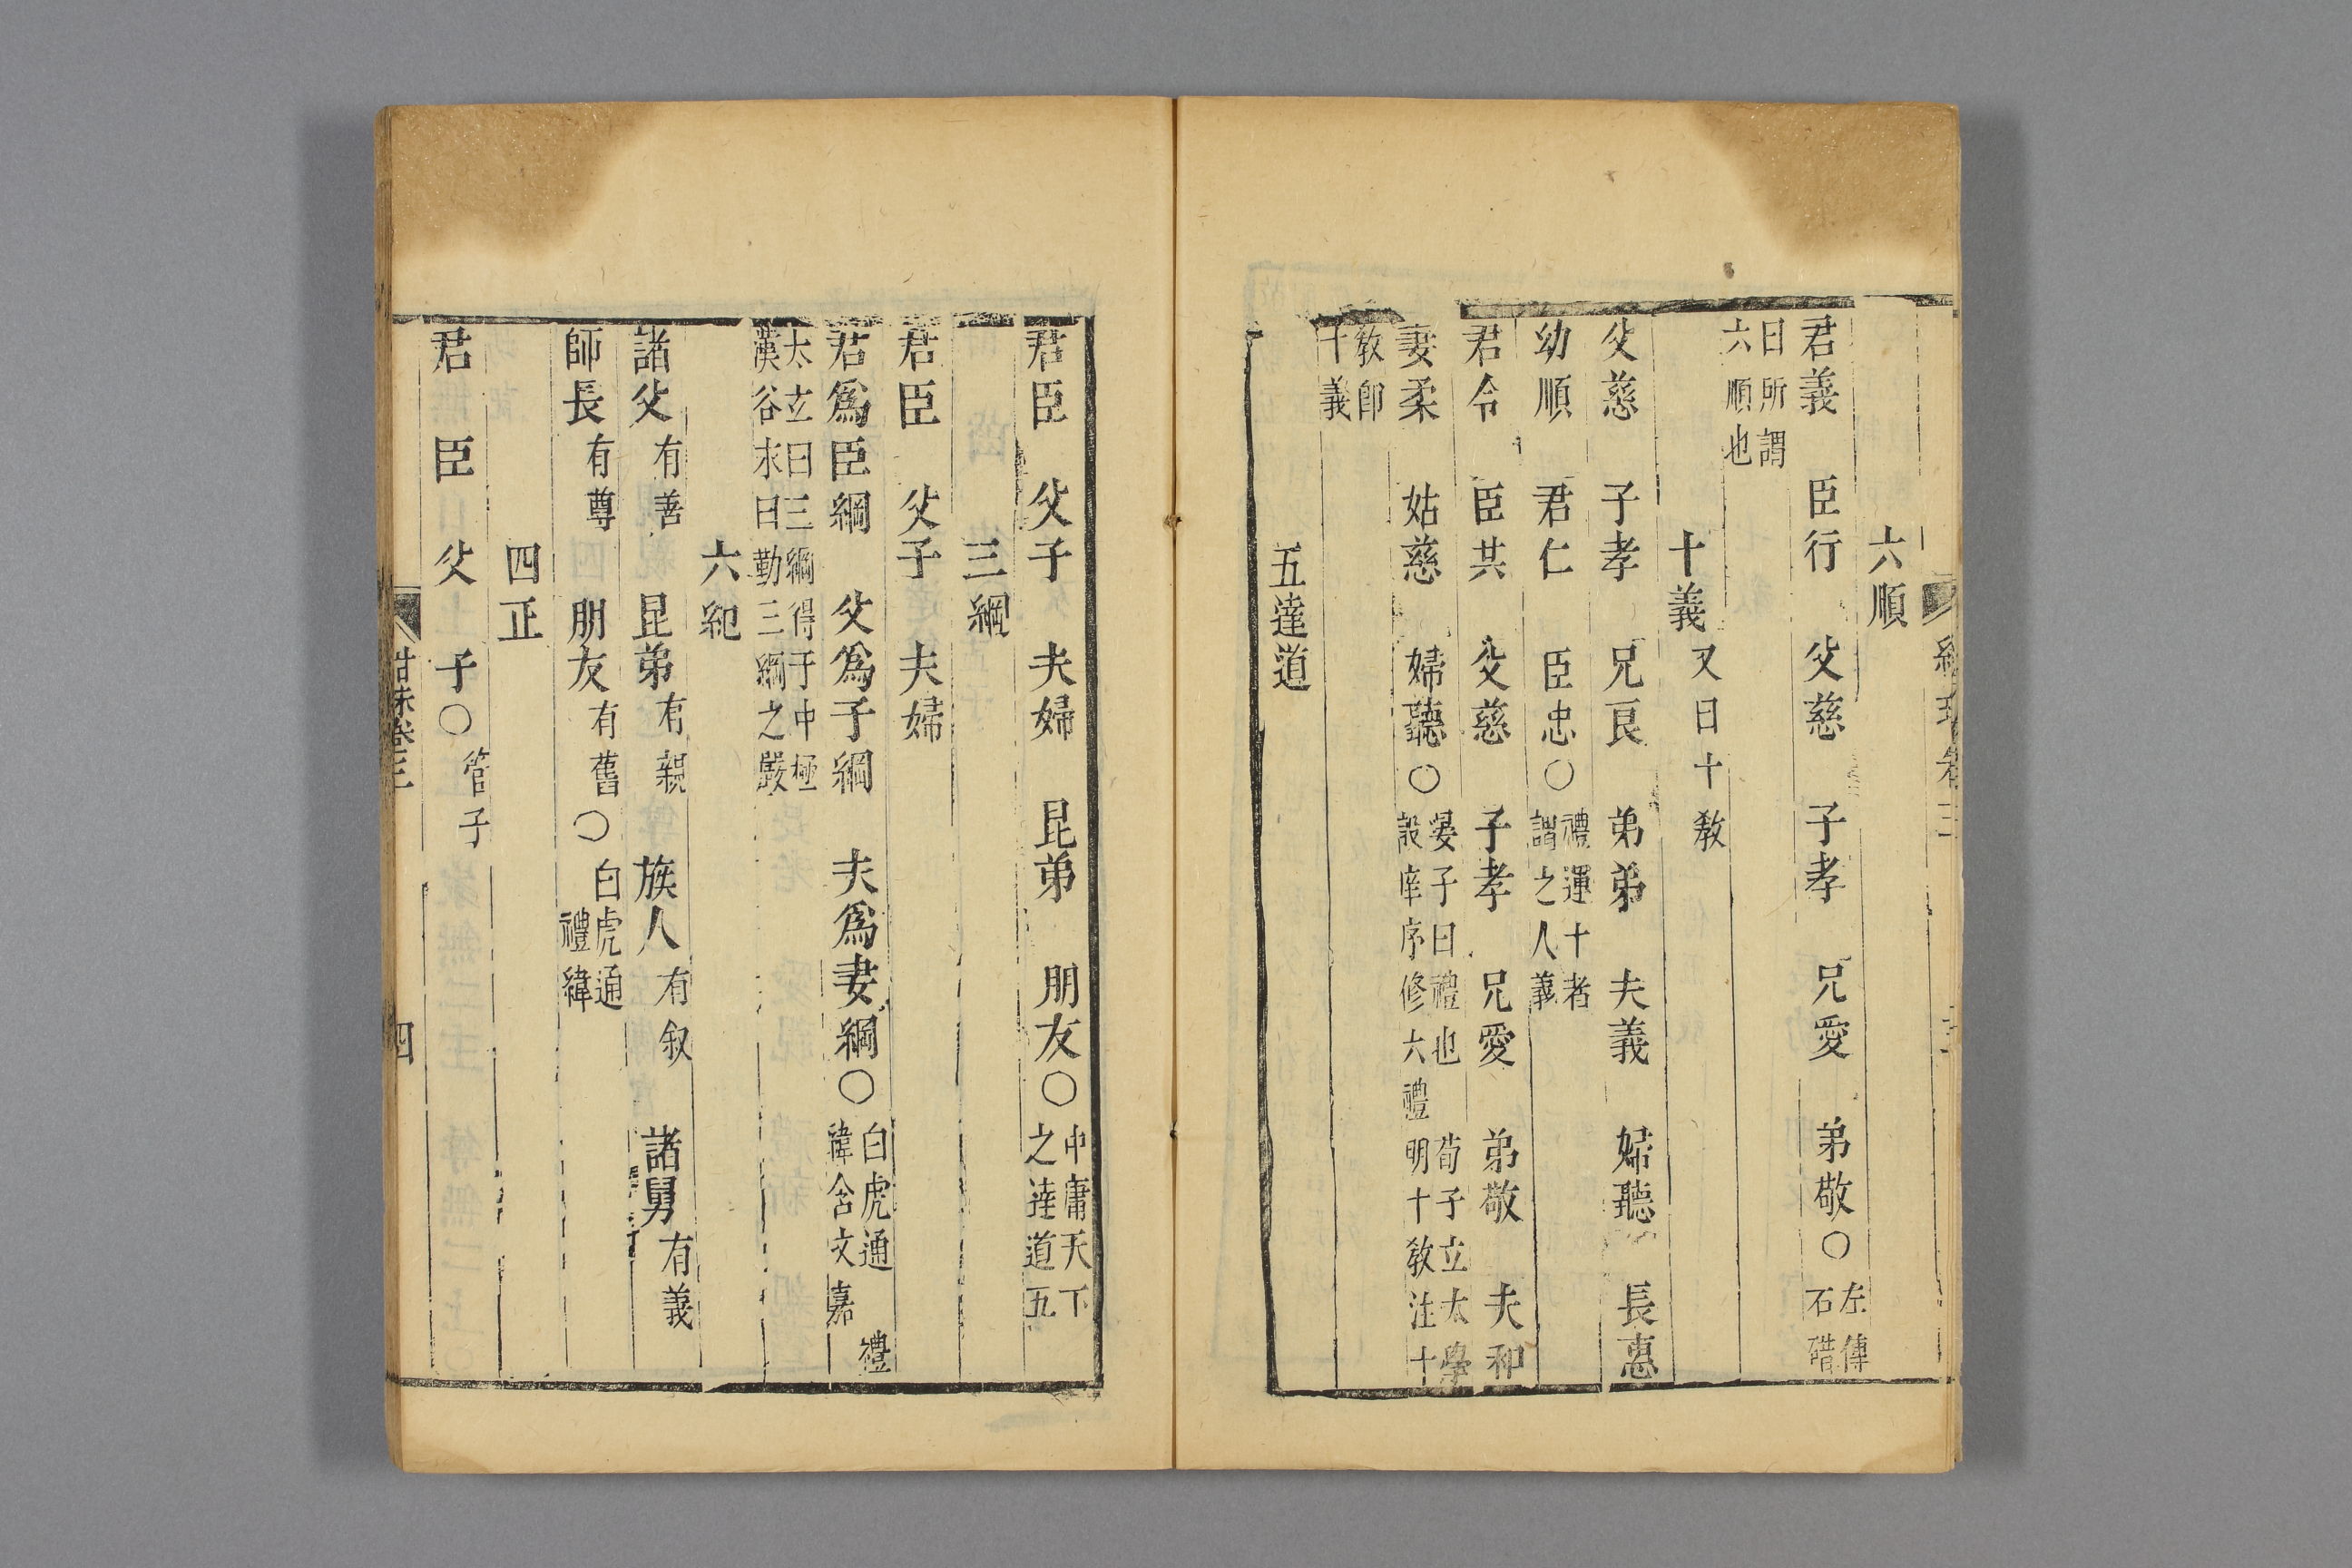 六順
君義 臣行 父慈 子孝 兄愛 弟敬〇左傳石碏
曰所謂六順也
十義又曰十教
父慈 子孝 兄良 弟弟 夫義 婦聽 長惠
幼順 君仁 臣忠〇禮運十者謂之人義
君令 臣共 父慈 子孝 兄愛 弟敬 夫和
妻柔 姑慈 婦聽〇晏子曰禮也 荀子立太學設庠序修六禮明十教注十
教卽十義
五達道
君臣 父子 夫婦 昆弟 朋友〇中庸天下之達道五
三綱
君臣 父子 夫婦
君爲臣綱 父爲子綱 夫爲妻綱〇白虎通 禮緯含文嘉
太玄曰三綱得于中極漢谷永曰勤三綱之嚴
六紀
諸父有善 昆弟有親 族人有叙 諸舅有義
師長有尊 朋友有舊〇白虎通禮緯
四正
君 臣 父 子〇管子
四